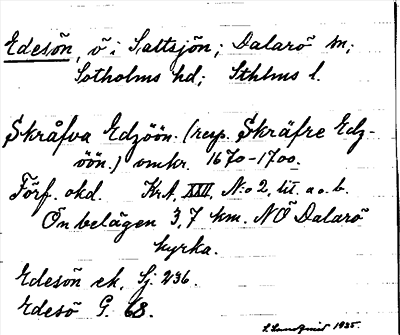 Edesön, ö i Saltsjön; Dalarö sn;
Sotholms hd; Sthlms l.
Skråfva Edzöön. (resp. Skräfre Edz-
öön.) omkr. 1670-1700.
Förf. okd. Kr.A, XXII, N:o 2, lit. a o. b.
Ön belägen 3,7 km. NÖ Dalarö
kyrka.
Edesön ek. Sj. 236.
Edesö G. 68.
1935.